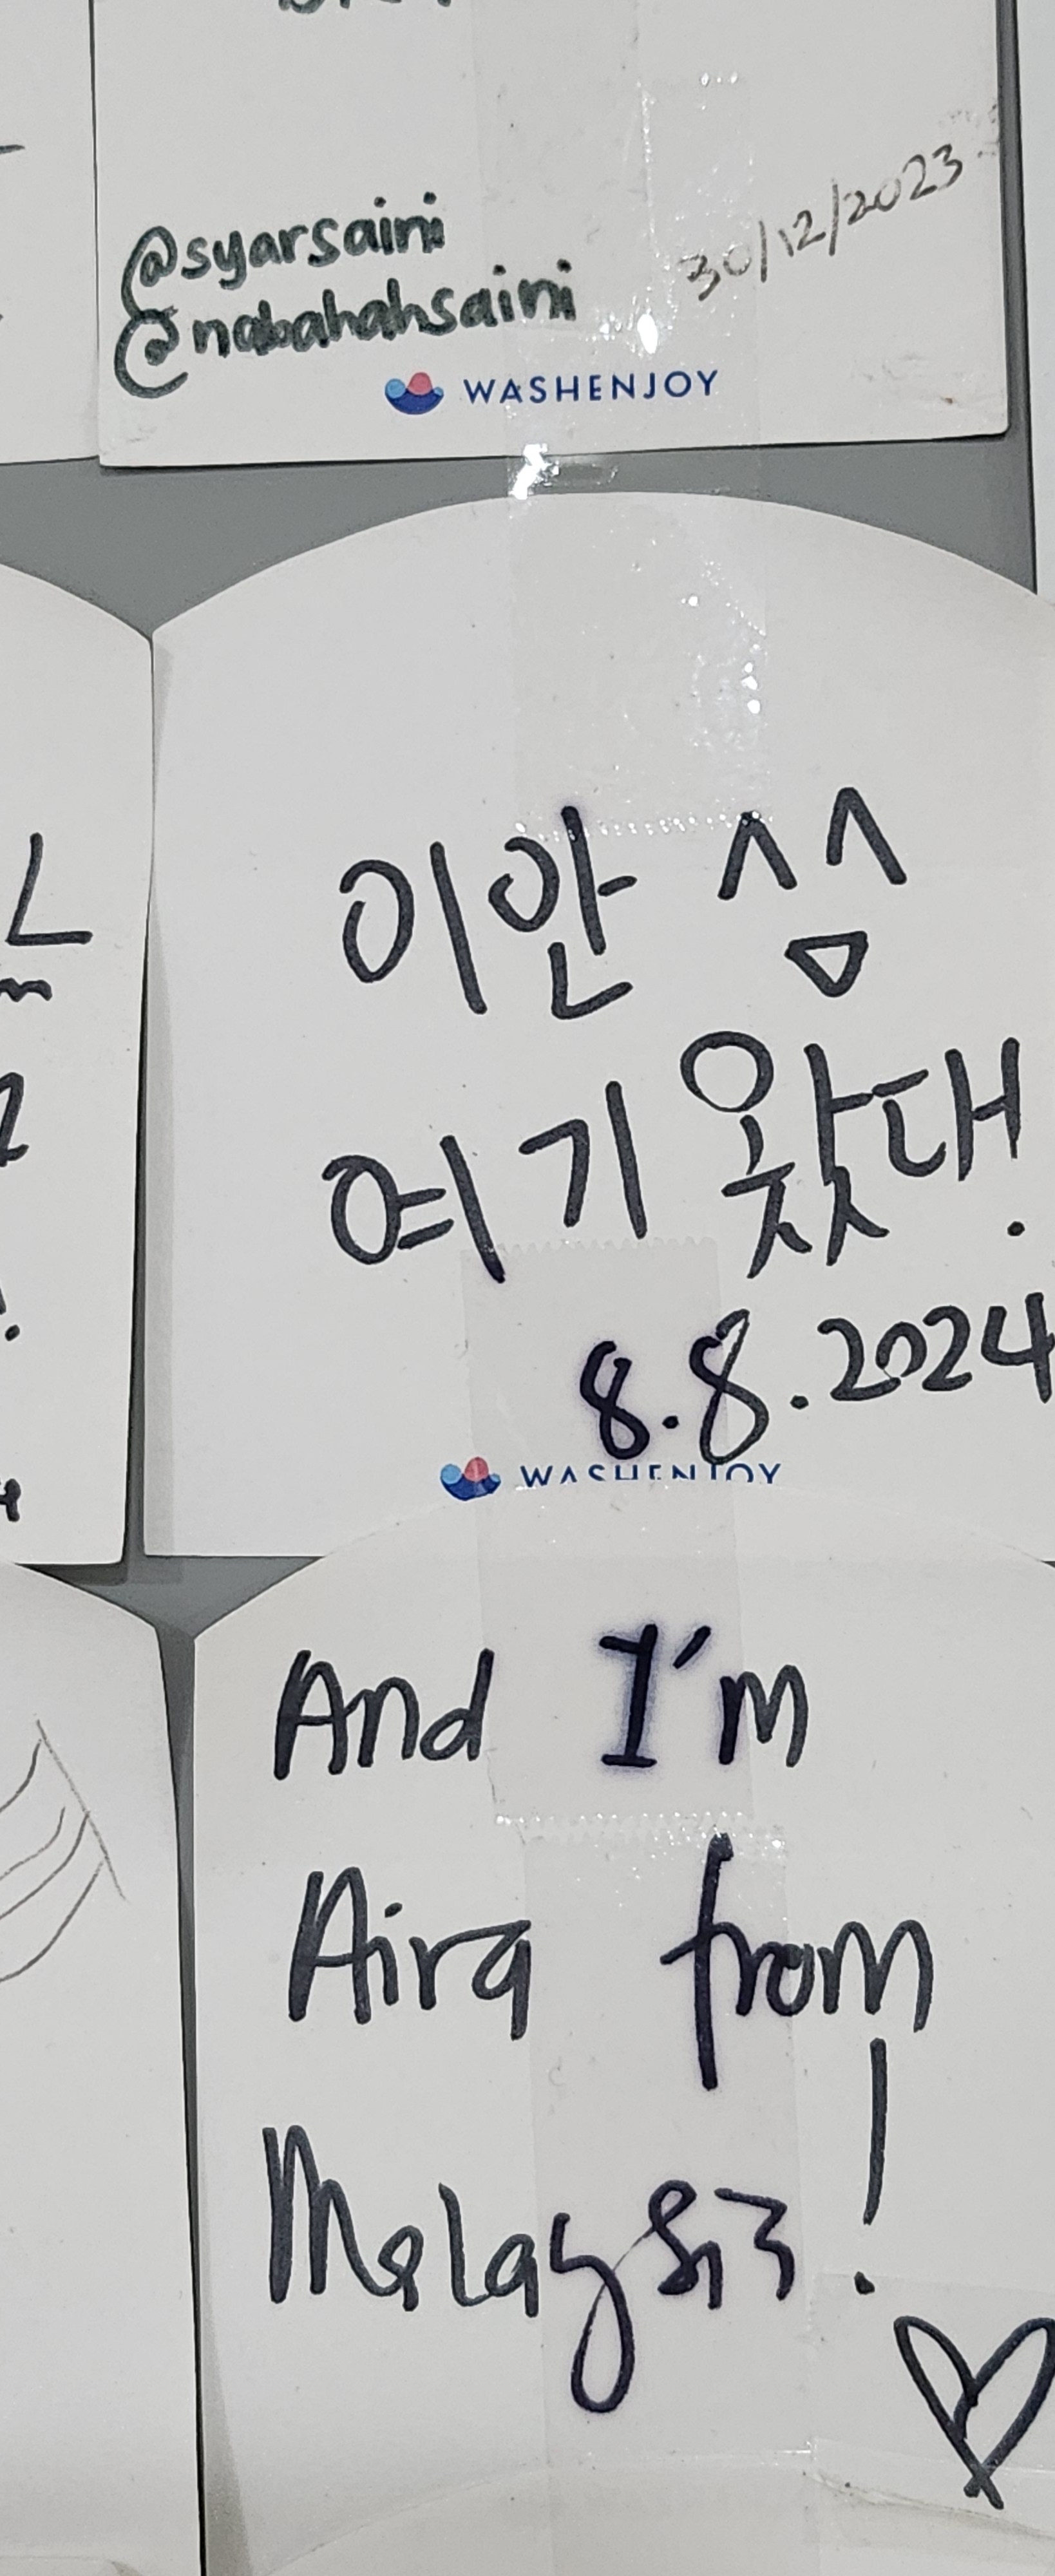 @syarsaini
@nabahahsaini
30/12/2023
WASHENJOY
이안 ^^
여기 왔대!
8.8.2024
WASHENJOY
And I'm
Aira from
Malaysia!